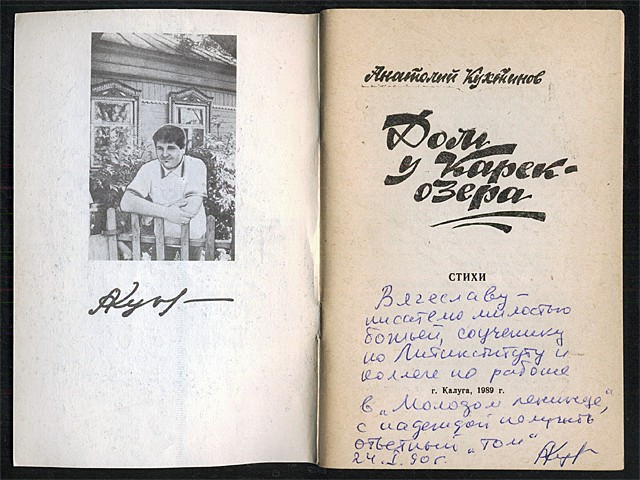 Анатолий Кухтинов
Дом
у Карек-
озера
СТИХИ
Вячеславу –
писателю милостью
божьей, соученику
по Литинституту и
коллеге по работе
г. Калуга, 1989 г.
в „Молодом ленинце",
с надеждой получить
ответный „том"
24.I.90г.